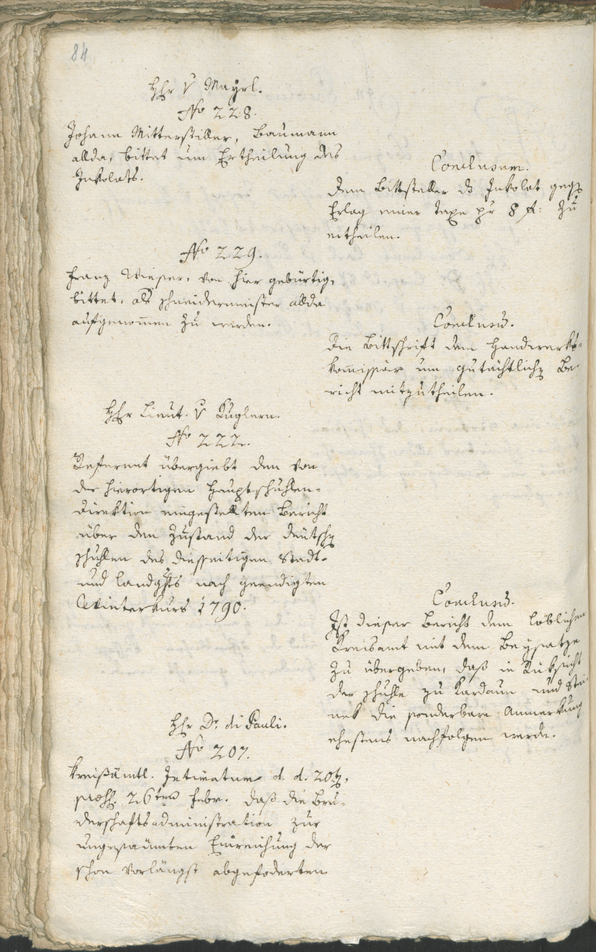 84
Hhr v Mayrl.
No 228.
Johann Mitterstiller, Baumann
allda, bittet um Ertheilung des
Inkolats.
Conclusum.
dem Bittsteller ds Inkolat geg
Erlag einer Taxe pr 8 f: zu
ertheilen.
No 229.
Franz Wieser, von hier gebürtig,
bittet, als Schneidermeister allda
aufgenommen zu werden.
Conclus.
die Bittschrift dem Handwerks-
komissär um gutächtliche Be-
richt mitzutheilen.
Hhr Lieut. v Kuglern.
No 222.
Referent übergiebt den von
der hierortigen Hauptschuhlen-
direktion eingestellten Bericht
über den Zustand der deutsch
Schuhlen des diesseitigen Stadt-
und Landghts nach geendigten
Winterkurs 1790.
Conclus.
Ist dieser Bericht dem löblichen
Kreisamt mit dem Beysatze
zu übergeben, daß in Rüksicht
der Schuhle zu Kardaun und Stei
nek die sonderbare Anmerkung
ehestens nachfolgen werde.
Hhr Dr di Pauli.
No 207.
Kreißämtl. Intimatum d. d. 20t,
26ten Febr. daß die Bru-
derschaftsadministration zur
ungesäumten Einreichung der
schon vorlängst abgeforderten